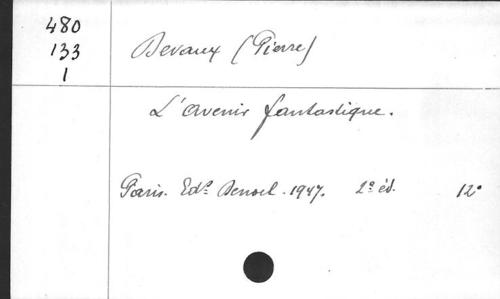 480
133
1
Devaux (Pierre)
L'avenir fantastique.
Paris. Edᵒ Denoel. 1947. 2ᵒ éd. 12ᵒ